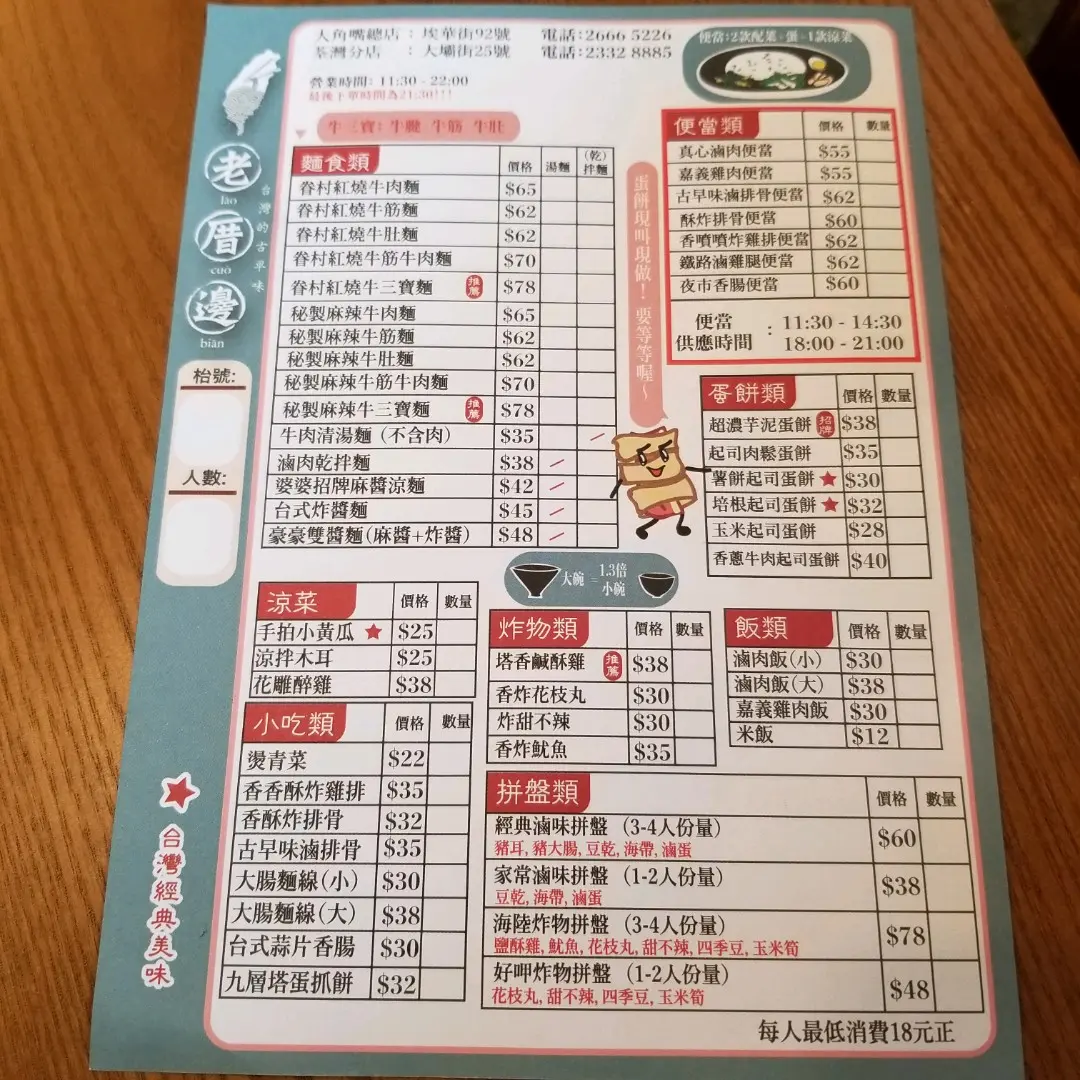 大角嘴總店 : 埃華街92號 電話:2666 5226
荃灣分店 : 大壩街25號 電話:2332 8885
營業時間: 11:30 - 22:00
最後下單時間為21:30!!!
便當:2款配菜+蛋+1款涼菜
牛三寶: 牛腱 牛筋 牛肚
老
lǎo
厝
cuò
邊
biān
台灣的古早味
枱號:
人數:
台灣經典美味
麵食類 價格 湯麵 (乾)拌麵
眷村紅燒牛肉麵 $65
眷村紅燒牛筋麵 $62
眷村紅燒牛肚麵 $62
眷村紅燒牛筋牛肉麵 $70
眷村紅燒牛三寶麵 推薦 $78
秘製麻辣牛肉麵 $65
秘製麻辣牛筋麵 $62
秘製麻辣牛肚麵 $62
秘製麻辣牛筋牛肉麵 $70
秘製麻辣牛三寶麵 推薦 $78
牛肉清湯麵 (不含肉) $35
滷肉乾拌麵 $38
婆婆招牌麻醬涼麵 $42
台式炸醬麵 $45
豪豪雙醬麵(麻醬+炸醬) $48
蛋餅現叫現做! 要等等喔~
便當類 價格 數量
真心滷肉便當 $55
嘉義雞肉便當 $55
古早味滷排骨便當 $62
酥炸排骨便當 $60
香噴噴炸雞排便當 $62
鐵路滷雞腿便當 $62
夜市香腸便當 $60
便當供應時間 : 11:30 - 14:30
18:00 - 21:00
蛋餅類 價格 數量
超濃芋泥蛋餅 招牌 $38
起司肉鬆蛋餅 $35
薯餅起司蛋餅 $30
培根起司蛋餅 $32
玉米起司蛋餅 $28
香蔥牛肉起司蛋餅 $40
大碗 = 1.3倍小碗
涼菜 價格 數量
手拍小黃瓜 $25
涼拌木耳 $25
花雕醉雞 $38
小吃類 價格 數量
燙青菜 $22
香香酥炸雞排 $35
香酥炸排骨 $32
古早味滷排骨 $35
大腸麵線(小) $30
大腸麵線(大) $38
台式蒜片香腸 $30
九層塔蛋抓餅 $32
炸物類 價格 數量
塔香鹹酥雞 推薦 $38
香炸花枝丸 $30
炸甜不辣 $30
香炸魷魚 $35
飯類 價格 數量
滷肉飯(小) $30
滷肉飯(大) $38
嘉義雞肉飯 $30
米飯 $12
拼盤類 價格 數量
經典滷味拼盤 (3-4人份量) $60
豬耳, 豬大腸, 豆乾, 海帶, 滷蛋
家常滷味拼盤 (1-2人份量) $38
豆乾, 海帶, 滷蛋
海陸炸物拼盤 (3-4人份量) $78
鹽酥雞, 魷魚, 花枝丸, 甜不辣, 四季豆, 玉米筍
好呷炸物拼盤 (1-2人份量) $48
花枝丸, 甜不辣, 四季豆, 玉米筍
每人最低消費18元正